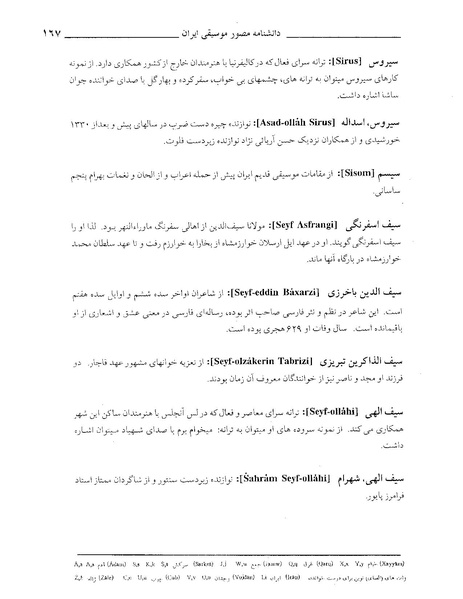 دانشنامه مصور موسیقی ایران ۱۶۷
سیروس [Sirus]: ترانه سرای فعال که در کالیفرنیا با هنرمندان خارج از کشور همکاری دارد. از نمونه
کارهای سیروس میتوان به ترانه های، چشمهای بی خواب، سفرکرده و بهارگل با صدای خواننده جوان
ساشا اشاره داشت.
سیروس، اسداله [Asad-ollâh Sirus]: نوازنده چیره دست ضرب در سالهای پیش و بعداز ۱۳۳۰
خورشیدی و از همکاران نزدیک حسن آریائی نژاد نوازنده زبردست فلوت.
سیسم [Sisom]: از مقامات موسیقی قدیم ایران پیش از حمله اعراب و از الحان و نغمات بهرام پنجم
ساسانی.
سیف اسفرنگی [Seyf Asfrangi]: مولانا سیف‌الدین از اهالی سفرنگ ماوراءالنهر بود. لذا او را
سیف اسفرنگی گویند. او در عهد ایل ارسلان خوارزمشاه از بخارا به خوارزم رفت و تا عهد سلطان محمد
خوارزمشاه در بارگاه آنها ماند.
سیف الدین باخرزی [Seyf-eddin Bâxarzi]: از شاعران اواخر سده ششم و اوایل سده هفتم
است. این شاعر در نظم و نثر فارسی صاحب اثر بوده، رساله‌ای فارسی در معنی عشق و اشعاری از او
باقیمانده است. سال وفات او ۶۲۹ هجری بوده است.
سیف الذاکرین تبریزی [Seyf-olzâkerin Tabrizi]: از تعزیه خوانهای مشهور عهد قاجار. دو
فرزند او مجد و ناصر نیز از خوانندگان معروف آن زمان بودند.
سیف الهی [Seyf-ollâhi]: ترانه سرای معاصر و فعال که در لس آنجلس با هنرمندان ساکن این شهر
همکاری می کند. از نمونه سروده های او میتوان به ترانه: میخوام برم با صدای شهیاد میتوان اشاره
داشت.
سیف الهی، شهرام [Šahrâm Seyf-ollâhi]: نوازنده زبردست سنتور و از شاگردان ممتاز استاد
فرامرز پایور.